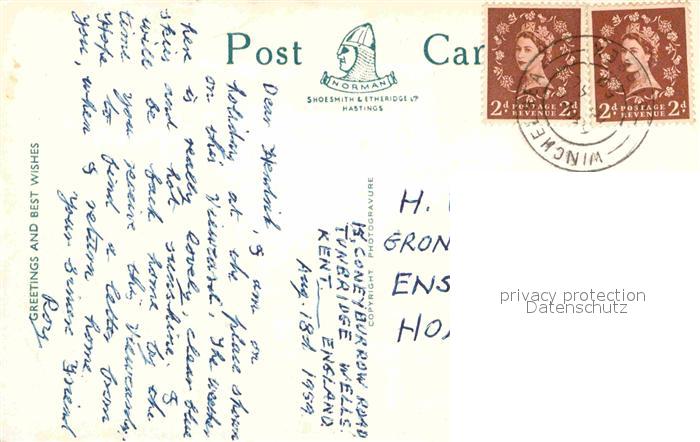 Post Car
NORMAN
SHOESMITH & ETHERIDGE LTD
HASTINGS
2d POSTAGE REVENUE 2d
2d POSTAGE REVENUE 2d
WINCHE
GREETINGS AND BEST WISHES
COPYRIGHT PHOTOGRAVURE
15, CONEYBURROW ROAD
TUNBRIDGE WELLS.
KENT. ENGLAND
Aug. 18d 1959.
Dear Hendrik, I am on
holiday at the place shown
on this Viewcard, The weather
here is really lovely, clear blue
skies and hot sunshine. I
will be back home by the
time you receive this Viewcard,
Hope to find a letter from
you, when I return home.
Your sincere Friend
Roy
H.
GRON
ENS
HO
privacy protection
Datenschutz